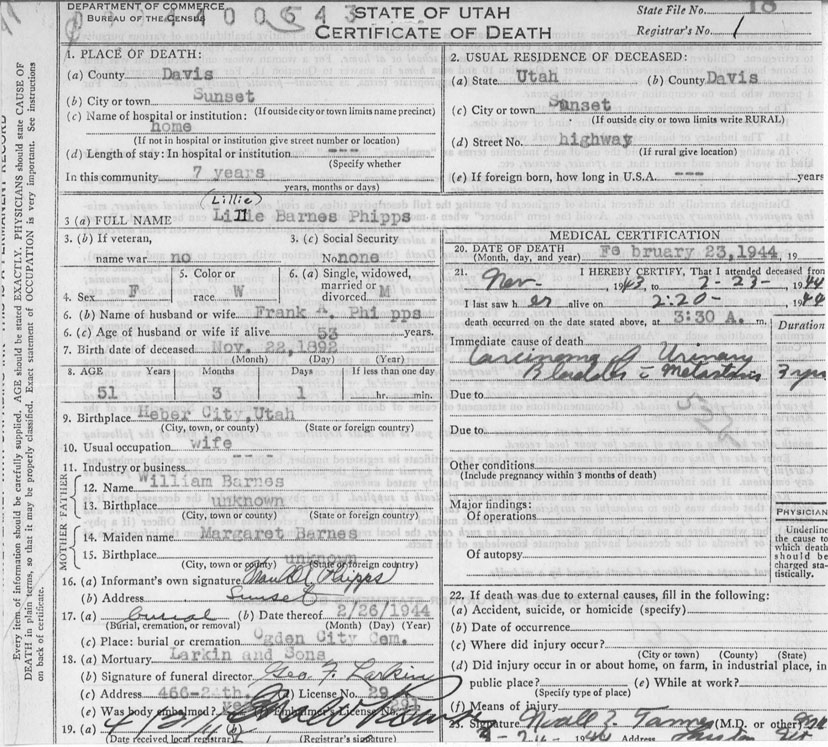 DEPARTMENT OF COMMERCE
BUREAU OF THE CENSUS
STATE OF UTAH
CERTIFICATE OF DEATH
State File No. 18
Registrar's No. 1
1. PLACE OF DEATH:
(a) County Davis
(b) City or town Sunset
(If outside city or town limits name precinct)
(c) Name of hospital or institution:
home
(If not in hospital or institution give street number or location)
(d) Length of stay: In hospital or institution ---
(Specify whether
In this community 7 years
years, months or days)
2. USUAL RESIDENCE OF DECEASED:
(a) State Utah (b) County Davis
(c) City or town Sunset
(If outside city or town limits write RURAL)
(d) Street No. highway
(If rural give location)
(e) If foreign born, how long in U.S.A. --- years
(Lillie)
3 (a) FULL NAME Lillie Barnes Phipps
3. (b) If veteran,
name war no
3. (c) Social Security
No. none
4. Sex F
5. Color or
race W
6. (a) Single, widowed,
married or
divorced M
6. (b) Name of husband or wife Frank A. Phi pps
6. (c) Age of husband or wife if alive 53 years.
7. Birth date of deceased Nov. 22, 1892
(Month) (Day) (Year)
8. AGE Years Months Days If less than one day
51 3 1 hr. min.
9. Birthplace Heber City, Utah
(City, town, or county) (State or foreign country)
10. Usual occupation wife
11. Industry or business ---
FATHER
12. Name William Barnes
13. Birthplace unknown
(City, town or county) (State or foreign country)
MOTHER
14. Maiden name Margaret Barnes
15. Birthplace unknown
(City, town or county) (State or foreign country)
16. (a) Informant's own signature Phipps
(b) Address Sunset
17. (a) burial (b) Date thereof 2/26/1944
(Burial, cremation, or removal) (Month) (Day) (Year)
(c) Place: burial or cremation Ogden City Cem.
18. (a) Mortuary Larkin and Sons
(b) Signature of funeral director Geo F. Larkin
(c) Address 466-2 th. License No. 29
(e) Was body embalmed? yes Embalmer's License No.
19. (a) (b)
(Date received local registrar) (Registrar's signature)
MEDICAL CERTIFICATION
20. DATE OF DEATH Fe bruary 23, 1944, 19
(Month, day, and year)
21. I HEREBY CERTIFY, That I attended deceased from
Nov. 1943, to 2-23-, 1944
I last saw h er alive on 2:20-, 1944
death occurred on the date stated above, at 3:30 A. m.
Duration
Immediate cause of death
Carcinoma of Urinary
Bladder c Metastasis 3 yrs
Due to
Due to
Other conditions
(Include pregnancy within 3 months of death)
Major findings:
Of operations
Of autopsy
PHYSICIAN
Underline
the cause to
which death
should be
charged sta-
tistically.
22. If death was due to external causes, fill in the following:
(a) Accident, suicide, or homicide (specify)
(b) Date of occurrence
(c) Where did injury occur?
(City or town) (County) (State)
(d) Did injury occur in or about home, on farm, in industrial place, in
public place? (e) While at work?
(Specify type of place)
(f) Means of injury
23. Signature Z. Tanner (M.D. or other)
Address
Every item of information should be carefully supplied. AGE should be stated EXACTLY. PHYSICIANS should state CAUSE OF
DEATH in plain terms, so that it may be properly classified. Exact statement of OCCUPATION is very important. See instructions
on back of certificate.